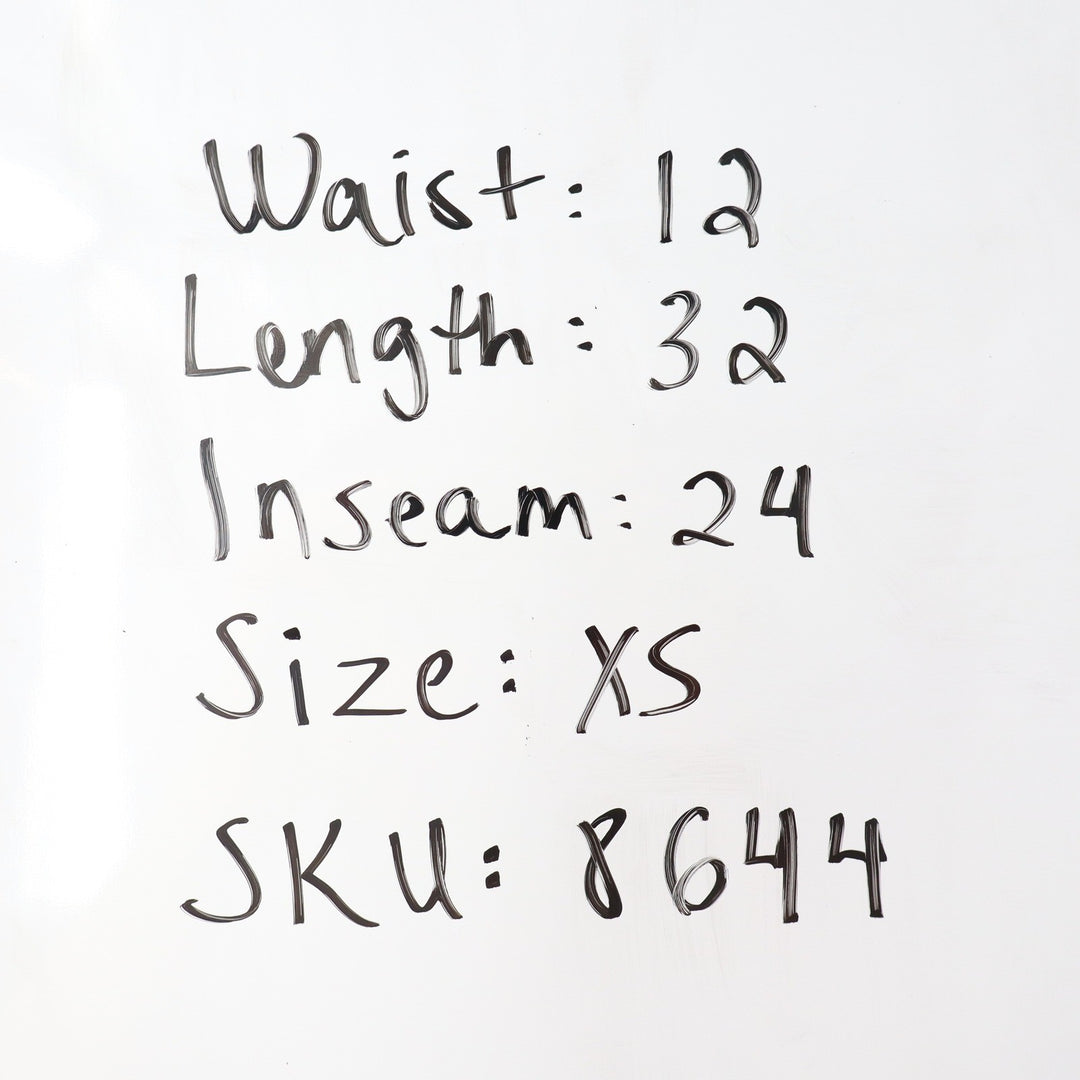 Waist: 12
Length: 32
Inseam: 24
Size: XS
SKU: 8644